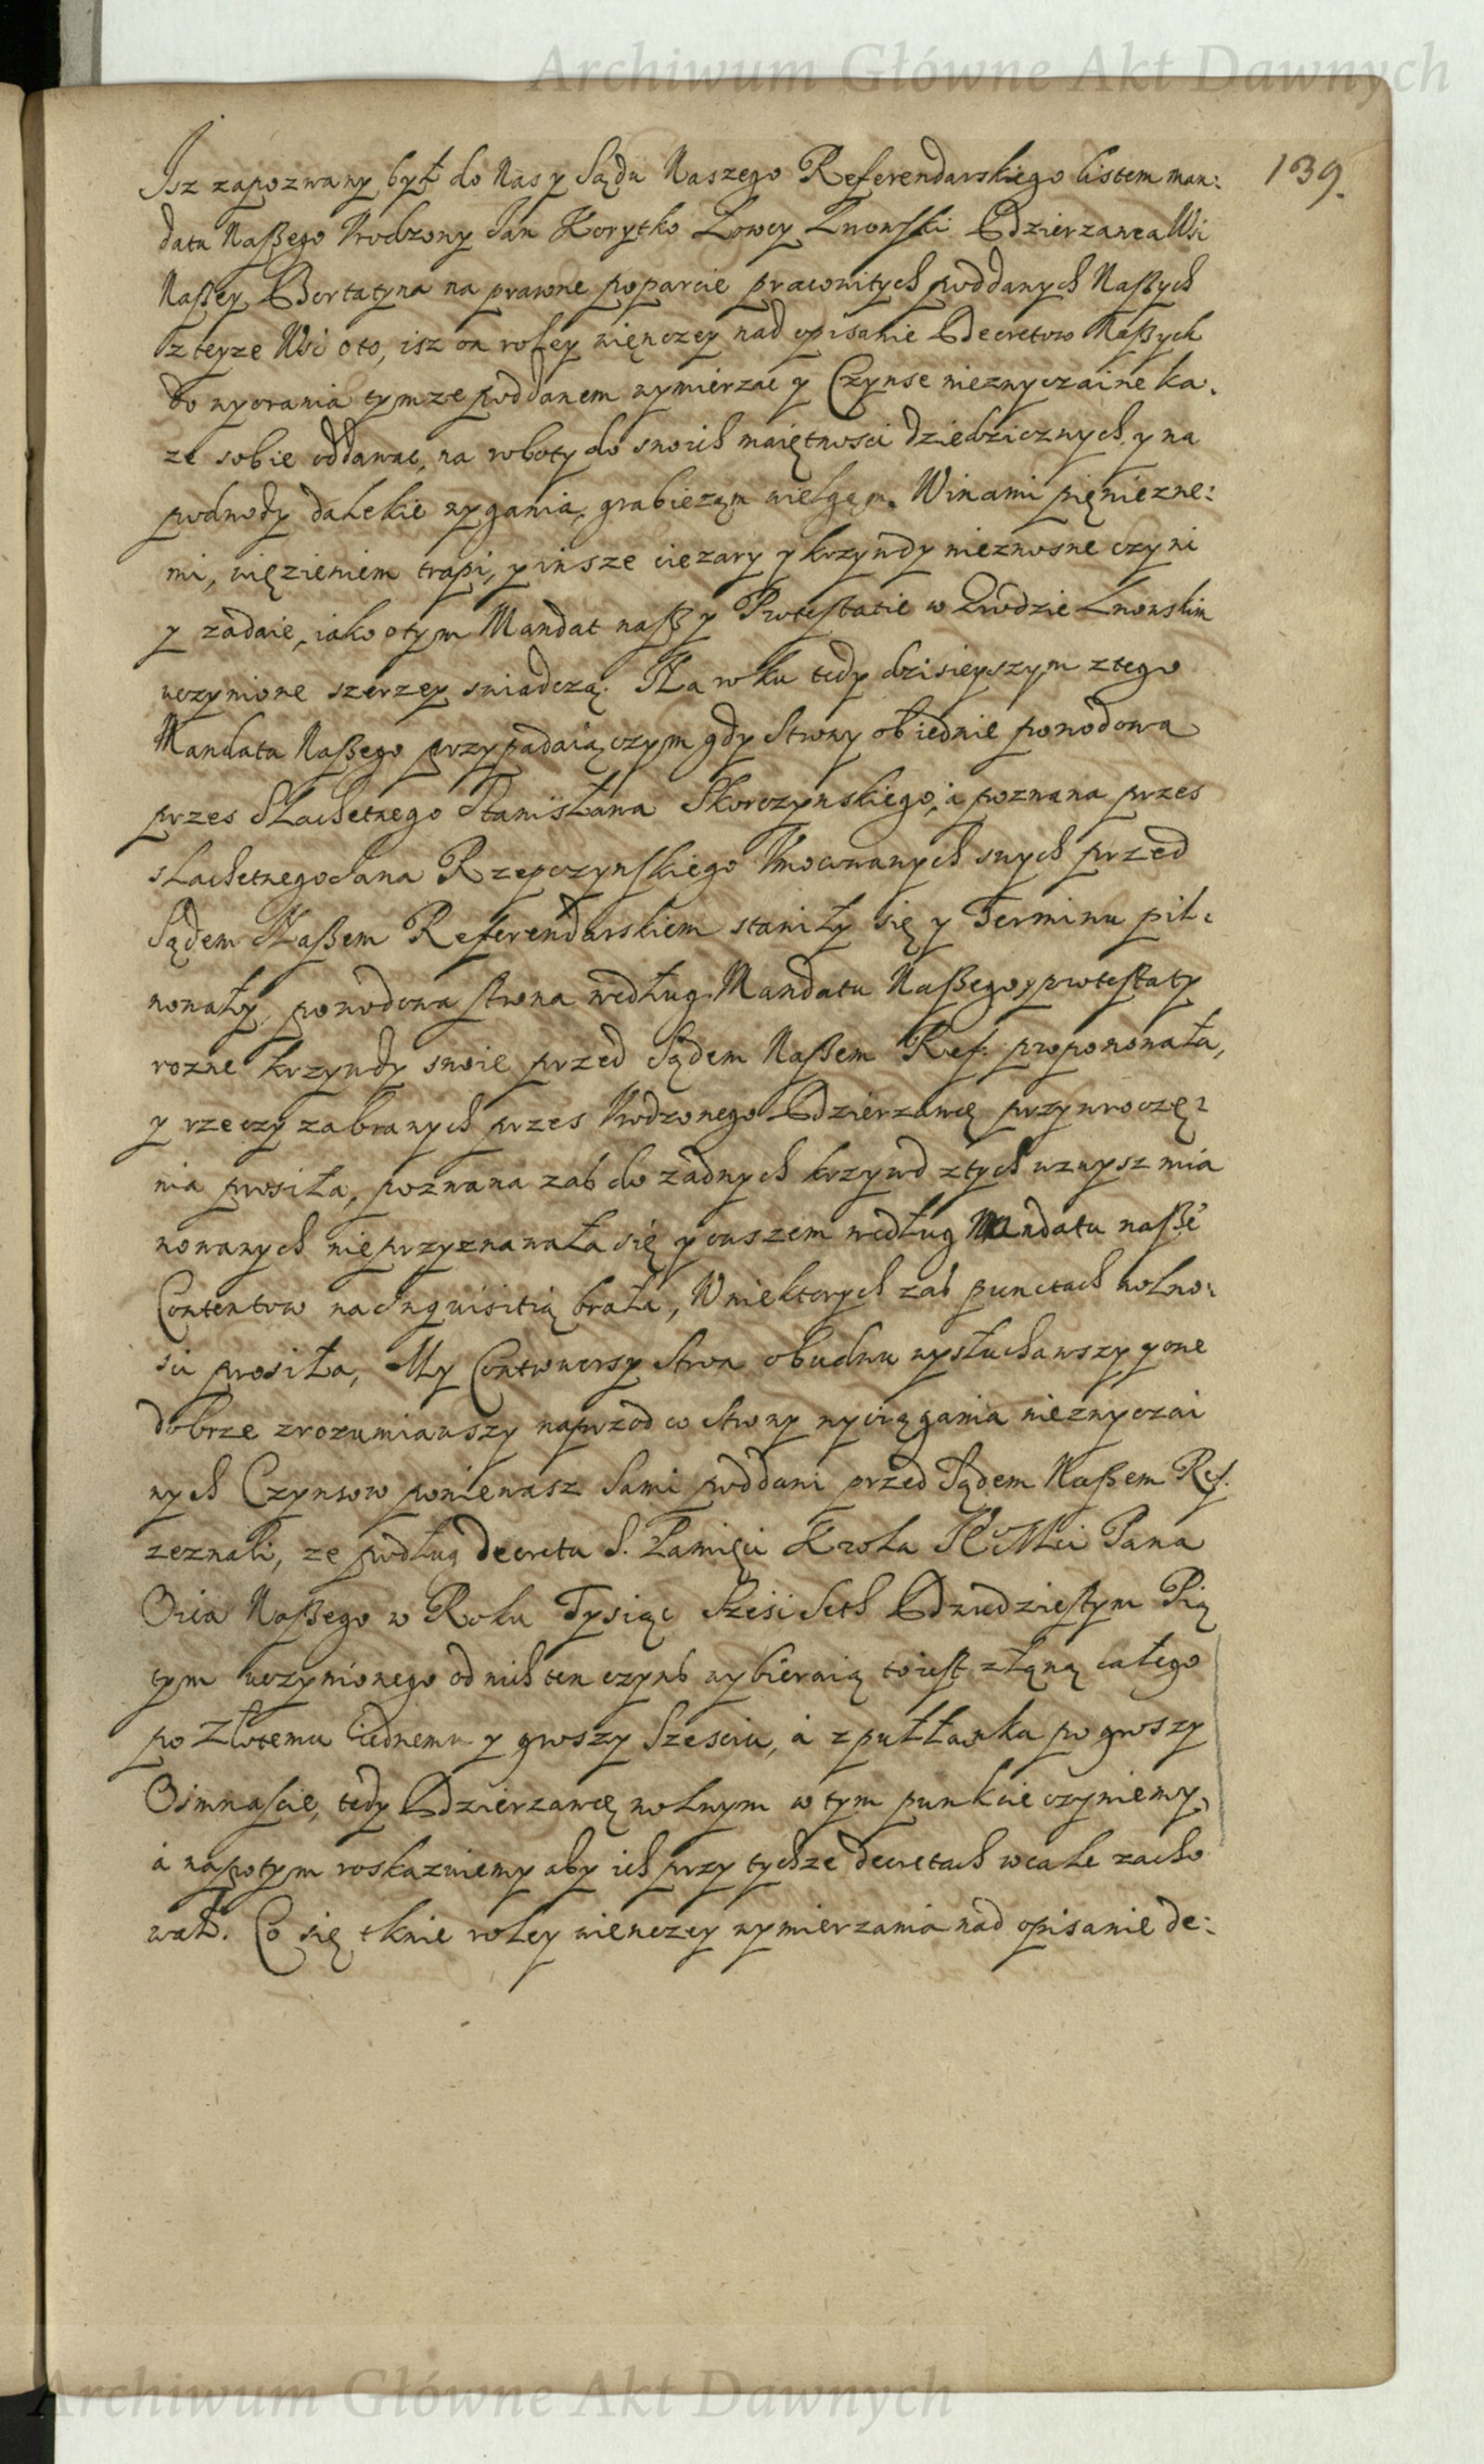 Archiwum Główne Akt Dawnych
139.
Isz zapozwany był do Nas y Sądu Naszego Referendarskiego listem man:
datu Naßego Vrodzony Jan Korytko Łowcy Lwowski Dzierzawca Wsi
Naßey Bortatyna na prawne poparcie pracowitych poddanych Naßych
z teyze Wsi oto, isz on roley więnczey nad opisanie Decretow Naßych
do wyorania tymze poddanem wymierzac y Czynse niezwyczaine ka:
ze sobie oddawac, na roboty do swoich maiętnosci dziedzicznych y na
podwody dalekie wygania, grabiezęm wielgęm. Winami pięniezne:
mi, więzieniem trapi, y insze ciezary y krzywdy nieznosne czyni
y zadaie, iako o tym Mandat naß y Protestatie w Grodzie Lwowskim
uczynione szerzey swiadczą. Na roku tedy dzisieyszym z tego
Mandata Naßego przypadaiączym gdy Strony obiednie powodowa
przes Slachetnego Stanisława Skorczynskiego, á pozwana przes
slachetnego Jana Rzepczynskiego Vmocowanych swych przed
Sądem Naßem Referendarskiem stawiły się y Terminu pil:
nowały, powodowa strona według Mandatu Naßego y protestaty
rozne krzywdy swoie przed Sądem Naßem Ref. proponowała,
y rzeczy zabranych przes Vrodzonego Dzierzawcę przywroczę:
nia prosiła, pozwana zas do zadnych krzywd z tych wzwysz mia
nowanych nieprzyznawała się y owszem według Mandatu naße
Contentow na Inquisitią brała, W niektorych zas punctach wolno:
sci prosiła, My Controwersy Stron obudwu wysłuchawszy y one
dobrze zrozumiawszy naprzod co Strony wyciągania niezwyczai
nych Czynsow poniewasz Sami poddani przed Sądem Naßem Ref.
zeznali, ze podług decretu S. Pamięci Krola JKMci Pana
Oica Naßego w Roku Tysiąc Sześć Seth Dwudziestym Pią
tym uczynionego od nich ten czyns wybieraią to iest z łąną całego
po złotemu iednemu y groszy Szesciu, á z pułłanka po groszy
Osmnascie, tedy Dzierzawcę wolnym w tym punkcie czyniemy,
á napotym roskazuiemy aby ich przy tychze decretach wcale zacho
wał. Co się tknie roley wienczey wymierzania nad opisanie de:
Archiwum Główne Akt Dawnych